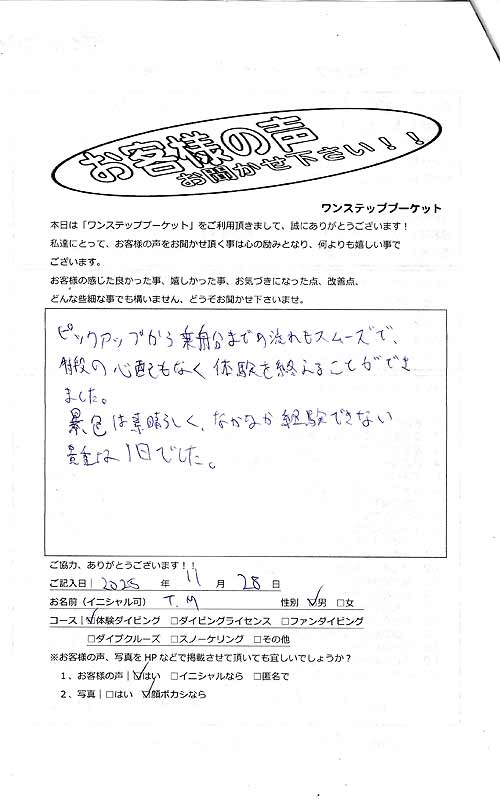 お客様の声
お聞かせ下さい！！
ワンステッププーケット
本日は「ワンステッププーケット」をご利用頂きまして、誠にありがとうございます！
私達にとって、お客様の声をお聞かせ頂く事は心の励みとなり、何よりも嬉しい事で
ございます。
お客様の感じた良かった事、嬉しかった事、お気づきになった点、改善点、
どんな些細な事でも構いません、どうぞお聞かせ下さいませ。
ピックアップから乗船までの流れもスムーズで、
特段の心配もなく体験を終えることができ
ました。
景色は素晴らしく、なかなか経験できない
貴重な1日でした。
ご協力、ありがとうございます！！
ご記入日| 2025 年 11 月 28 日
お名前（イニシャル可） T.M 性別 ☑男 □女
コース|☑体験ダイビング □ダイビングライセンス □ファンダイビング
□ダイブクルーズ □スノーケリング □その他
※お客様の声、写真をHPなどで掲載させて頂いても宜しいでしょうか？
1、お客様の声|☑はい □イニシャルなら □匿名で
2、写真|□はい ☑顔ボカシなら